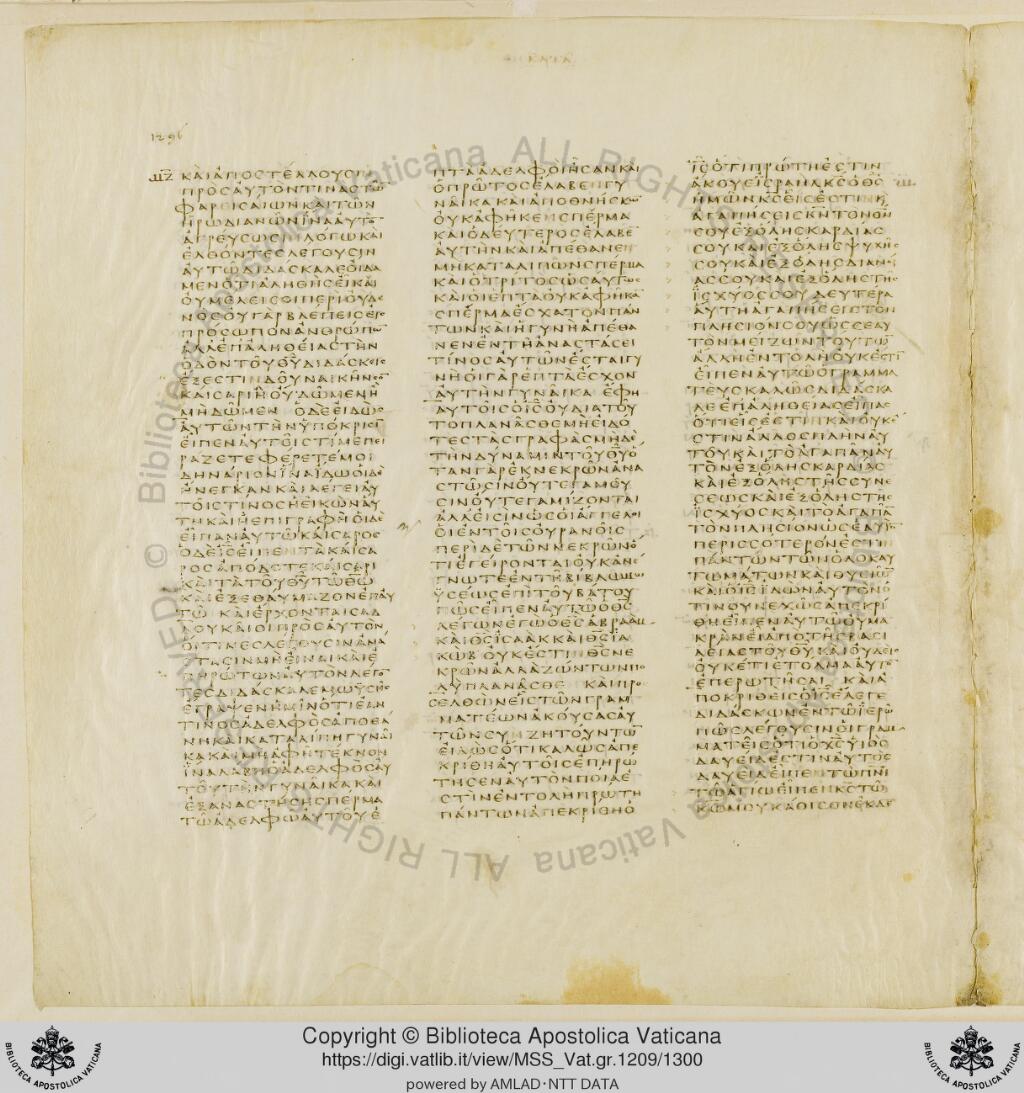 ΚΑΤΑ
1296
ΚΑΙ ΑΠΟΣΤΕΛΛΟΥΣΙΝ
ΠΡΟΣ ΑΥΤΟΝ ΤΙΝΑΣ ΤΩ̅
ΦΑΡΕΙΣΑΙΩΝ ΚΑΙ ΤΩΝ
ΗΡΩΔΙΑΝΩΝ ΙΝΑ ΑΥΤΟ̅
ΑΓΡΕΥΣΩΣΙΝ ΛΟΓΩ ΚΑΙ
ΕΛΘΟΝΤΕΣ ΛΕΓΟΥΣΙΝ
ΑΥΤΩ ΔΙΔΑΣΚΑΛΕ ΟΙΔΑ
ΜΕΝ ΟΤΙ ΑΛΗΘΗΣ ΕΙ ΚΑΙ
ΟΥ ΜΕΛΕΙ ΣΟΙ ΠΕΡΙ ΟΥΔΕ
ΝΟΣ ΟΥ ΓΑΡ ΒΛΕΠΕΙΣ ΕΙΣ
ΠΡΟΣΩΠΟΝ ΑΝΘΡΩΠΩ̅
ΑΛΛ ΕΠ ΑΛΗΘΕΙΑΣ ΤΗΝ
ΟΔΟΝ ΤΟΥ ΘΥ ΔΙΔΑΣΚΕΙΣ
ΕΞΕΣΤΙΝ ΔΟΥΝΑΙ ΚΗΝΣΟ̅
ΚΑΙΣΑΡΙ Η ΟΥ ΔΩΜΕΝ Η
ΜΗ ΔΩΜΕΝ Ο ΔΕ ΕΙΔΩΣ
ΑΥΤΩΝ ΤΗΝ ΥΠΟΚΡΙΣΙ̅
ΕΙΠΕΝ ΑΥΤΟΙΣ ΤΙ ΜΕ ΠΕΙ
ΡΑΖΕΤΕ ΦΕΡΕΤΕ ΜΟΙ
ΔΗΝΑΡΙΟΝ ΙΝΑ ΙΔΩ ΟΙ ΔΕ
ΗΝΕΓΚΑΝ ΚΑΙ ΛΕΓΕΙ ΑΥ
ΤΟΙΣ ΤΙΝΟΣ Η ΕΙΚΩΝ ΑΥ
ΤΗ ΚΑΙ Η ΕΠΙΓΡΑΦΗ ΟΙ ΔΕ
ΕΙΠΑΝ ΑΥΤΩ ΚΑΙΣΑΡΟΣ
Ο ΔΕ ΙΣ ΕΙΠΕΝ ΤΑ ΚΑΙΣΑ
ΡΟΣ ΑΠΟΔΟΤΕ ΚΑΙΣΑΡΙ
ΚΑΙ ΤΑ ΤΟΥ ΘΥ ΤΩ ΘΩ
ΚΑΙ ΕΞΕΘΑΥΜΑΖΟΝ ΕΠ ΑΥ
ΤΩ ΚΑΙ ΕΡΧΟΝΤΑΙ ΣΑΔ
ΔΟΥΚΑΙΟΙ ΠΡΟΣ ΑΥΤΟΝ
ΟΙΤΙΝΕΣ ΛΕΓΟΥΣΙΝ ΑΝΑ
ΣΤΑΣΙΝ ΜΗ ΕΙΝΑΙ ΚΑΙ Ε
ΠΗΡΩΤΩΝ ΑΥΤΟΝ ΛΕΓΟ̅
ΤΕΣ ΔΙΔΑΣΚΑΛΕ ΜΩΥΣΗΣ
ΕΓΡΑΨΕΝ ΗΜΙΝ ΟΤΙ ΕΑΝ
ΤΙΝΟΣ ΑΔΕΛΦΟΣ ΑΠΟΘΑ
ΝΗ ΚΑΙ ΚΑΤΑΛΙΠΗ ΓΥΝΑΙ
ΚΑ ΚΑΙ ΜΗ ΑΦΗ ΤΕΚΝΟΝ
ΙΝΑ ΛΑΒΗ Ο ΑΔΕΛΦΟΣ ΑΥ
ΤΟΥ ΤΗΝ ΓΥΝΑΙΚΑ ΚΑΙ
ΕΞΑΝΑΣΤΗΣΗ ΣΠΕΡΜΑ
ΤΩ ΑΔΕΛΦΩ ΑΥΤΟΥ Ε
ΠΤΑ ΑΔΕΛΦΟΙ ΗΣΑΝ ΚΑΙ
Ο ΠΡΩΤΟΣ ΕΛΑΒΕΝ ΓΥ
ΝΑΙΚΑ ΚΑΙ ΑΠΟΘΝΗΣΚΩ̅
ΟΥΚ ΑΦΗΚΕΝ ΣΠΕΡΜΑ
ΚΑΙ Ο ΔΕΥΤΕΡΟΣ ΕΛΑΒΕ̅
ΑΥΤΗΝ ΚΑΙ ΑΠΕΘΑΝΕΝ
ΜΗ ΚΑΤΑΛΙΠΩΝ ΣΠΕΡΜΑ
ΚΑΙ Ο ΤΡΙΤΟΣ ΩΣΑΥΤΩΣ
ΚΑΙ ΟΙ ΕΠΤΑ ΟΥΚ ΑΦΗΚΑ̅
ΣΠΕΡΜΑ ΕΣΧΑΤΟΝ ΠΑΝ
ΤΩΝ ΚΑΙ Η ΓΥΝΗ ΑΠΕΘΑ
ΝΕΝ ΕΝ ΤΗ ΑΝΑΣΤΑΣΕΙ
ΤΙΝΟΣ ΑΥΤΩΝ ΕΣΤΑΙ ΓΥ
ΝΗ ΟΙ ΓΑΡ ΕΠΤΑ ΕΣΧΟΝ
ΑΥΤΗΝ ΓΥΝΑΙΚΑ ΕΦΗ
ΑΥΤΟΙΣ Ο ΙΣ ΟΥ ΔΙΑ ΤΟΥ
ΤΟ ΠΛΑΝΑΣΘΕ ΜΗ ΕΙΔΟ
ΤΕΣ ΤΑΣ ΓΡΑΦΑΣ ΜΗΔΕ
ΤΗΝ ΔΥΝΑΜΙΝ ΤΟΥ ΘΥ Ο
ΤΑΝ ΓΑΡ ΕΚ ΝΕΚΡΩΝ ΑΝΑ
ΣΤΩΣΙΝ ΟΥΤΕ ΓΑΜΟΥ
ΣΙΝ ΟΥΤΕ ΓΑΜΙΖΟΝΤΑΙ
ΑΛΛ ΕΙΣΙΝ ΩΣ ΟΙ ΑΓΓΕΛΟΙ
ΟΙ ΕΝ ΤΟΙΣ ΟΥΡΑΝΟΙΣ
ΠΕΡΙ ΔΕ ΤΩΝ ΝΕΚΡΩΝ Ο
ΤΙ ΕΓΕΙΡΟΝΤΑΙ ΟΥΚ ΑΝΕ
ΓΝΩΤΕ ΕΝ ΤΗ ΒΙΒΛΩ ΜΩ
ΥΣΕΩΣ ΕΠΙ ΤΟΥ ΒΑΤΟΥ
ΠΩΣ ΕΙΠΕΝ ΑΥΤΩ Ο ΘΣ
ΛΕΓΩΝ ΕΓΩ Ο ΘΣ ΑΒΡΑΑΜ
ΚΑΙ ΘΣ ΙΣΑΑΚ ΚΑΙ ΘΣ ΙΑ
ΚΩΒ ΟΥΚ ΕΣΤΙΝ ΘΣ ΝΕ
ΚΡΩΝ ΑΛΛΑ ΖΩΝΤΩΝ ΠΟ
ΛΥ ΠΛΑΝΑΣΘΕ ΚΑΙ ΠΡΟ
ΣΕΛΘΩΝ ΕΙΣ ΤΩΝ ΓΡΑΜ
ΜΑΤΕΩΝ ΑΚΟΥΣΑΣ ΑΥ
ΤΩΝ ΣΥΝΖΗΤΟΥΝΤΩ̅
ΕΙΔΩΣ ΟΤΙ ΚΑΛΩΣ ΑΠΕ
ΚΡΙΘΗ ΑΥΤΟΙΣ ΕΠΗΡΩ
ΤΗΣΕΝ ΑΥΤΟΝ ΠΟΙΑ Ε
ΣΤΙΝ ΕΝΤΟΛΗ ΠΡΩΤΗ
ΠΑΝΤΩΝ ΑΠΕΚΡΙΘΗ Ο
ΙΣ ΟΤΙ ΠΡΩΤΗ ΕΣΤΙΝ
ΑΚΟΥΕ ΙΣΡΑΗΛ ΚΣ Ο ΘΣ
ΗΜΩΝ ΚΣ ΕΙΣ ΕΣΤΙΝ Κ
ΑΓΑΠΗΣΕΙΣ ΚΝ ΤΟΝ ΘΝ
ΣΟΥ ΕΞ ΟΛΗΣ ΚΑΡΔΙΑΣ
ΣΟΥ ΚΑΙ ΕΞ ΟΛΗΣ ΨΥΧΗΣ
ΣΟΥ ΚΑΙ ΕΞ ΟΛΗΣ ΔΙΑΝΟΙ
ΑΣ ΣΟΥ ΚΑΙ ΕΞ ΟΛΗΣ ΤΗΣ
ΙΣΧΥΟΣ ΣΟΥ ΔΕΥΤΕΡΑ
ΑΥΤΗ ΑΓΑΠΗΣΕΙΣ ΤΟΝ
ΠΛΗΣΙΟΝ ΣΟΥ ΩΣ ΣΕΑΥ
ΤΟΝ ΜΕΙΖΩΝ ΤΟΥΤΩ̅
ΑΛΛΗ ΕΝΤΟΛΗ ΟΥΚ ΕΣΤΙ̅
ΕΙΠΕΝ ΑΥΤΩ Ο ΓΡΑΜΜΑ
ΤΕΥΣ ΚΑΛΩΣ ΔΙΔΑΣΚΑ
ΛΕ ΕΠ ΑΛΗΘΕΙΑΣ ΕΙΠΑΣ
ΟΤΙ ΕΙΣ ΕΣΤΙΝ ΚΑΙ ΟΥΚ Ε
ΣΤΙΝ ΑΛΛΟΣ ΠΛΗΝ ΑΥ
ΤΟΥ ΚΑΙ ΤΟ ΑΓΑΠΑΝ ΑΥ
ΤΟΝ ΕΞ ΟΛΗΣ ΚΑΡΔΙΑΣ
ΚΑΙ ΕΞ ΟΛΗΣ ΤΗΣ ΣΥΝΕ
ΣΕΩΣ ΚΑΙ ΕΞ ΟΛΗΣ ΤΗΣ
ΙΣΧΥΟΣ ΚΑΙ ΤΟ ΑΓΑΠΑ̅
ΤΟΝ ΠΛΗΣΙΟΝ ΩΣ ΕΑΥΤΟ̅
ΠΕΡΙΣΣΟΤΕΡΟΝ ΕΣΤΙΝ
ΠΑΝΤΩΝ ΤΩΝ ΟΛΟΚΑΥ
ΤΩΜΑΤΩΝ ΚΑΙ ΘΥΣΙΩ̅
ΚΑΙ Ο ΙΣ ΙΔΩΝ ΑΥΤΟΝ Ο
ΤΙ ΝΟΥΝΕΧΩΣ ΑΠΕΚΡΙ
ΘΗ ΕΙΠΕΝ ΑΥΤΩ ΟΥ ΜΑ
ΚΡΑΝ ΕΙ ΑΠΟ ΤΗΣ ΒΑΣΙ
ΛΕΙΑΣ ΤΟΥ ΘΥ ΚΑΙ ΟΥΔΕΙΣ
ΟΥΚΕΤΙ ΕΤΟΛΜΑ ΑΥΤΟ̅
ΕΠΕΡΩΤΗΣΑΙ ΚΑΙ Α
ΠΟΚΡΙΘΕΙΣ Ο ΙΣ ΕΛΕΓΕ̅
ΔΙΔΑΣΚΩΝ ΕΝ ΤΩ ΙΕΡΩ
ΠΩΣ ΛΕΓΟΥΣΙΝ ΟΙ ΓΡΑΜ
ΜΑΤΕΙΣ ΟΤΙ Ο ΧΣ ΥΙΟΣ
ΔΑΥΕΙΔ ΕΣΤΙΝ ΑΥΤΟΣ
ΔΑΥΕΙΔ ΕΙΠΕΝ ΤΩ ΠΝΙ
ΤΩ ΑΓΙΩ ΕΙΠΕΝ ΚΣ ΤΩ
ΚΩ ΜΟΥ ΚΑΘΙΣΟΝ ΕΚ ΔΕ
Copyright © Biblioteca Apostolica Vaticana
https://digi.vatlib.it/view/MSS_Vat.gr.1209/1300
powered by AMLAD·NTT DATA
BIBLIOTECA APOSTOLICA VATICANA
BIBLIOTECA APOSTOLICA VATICANA